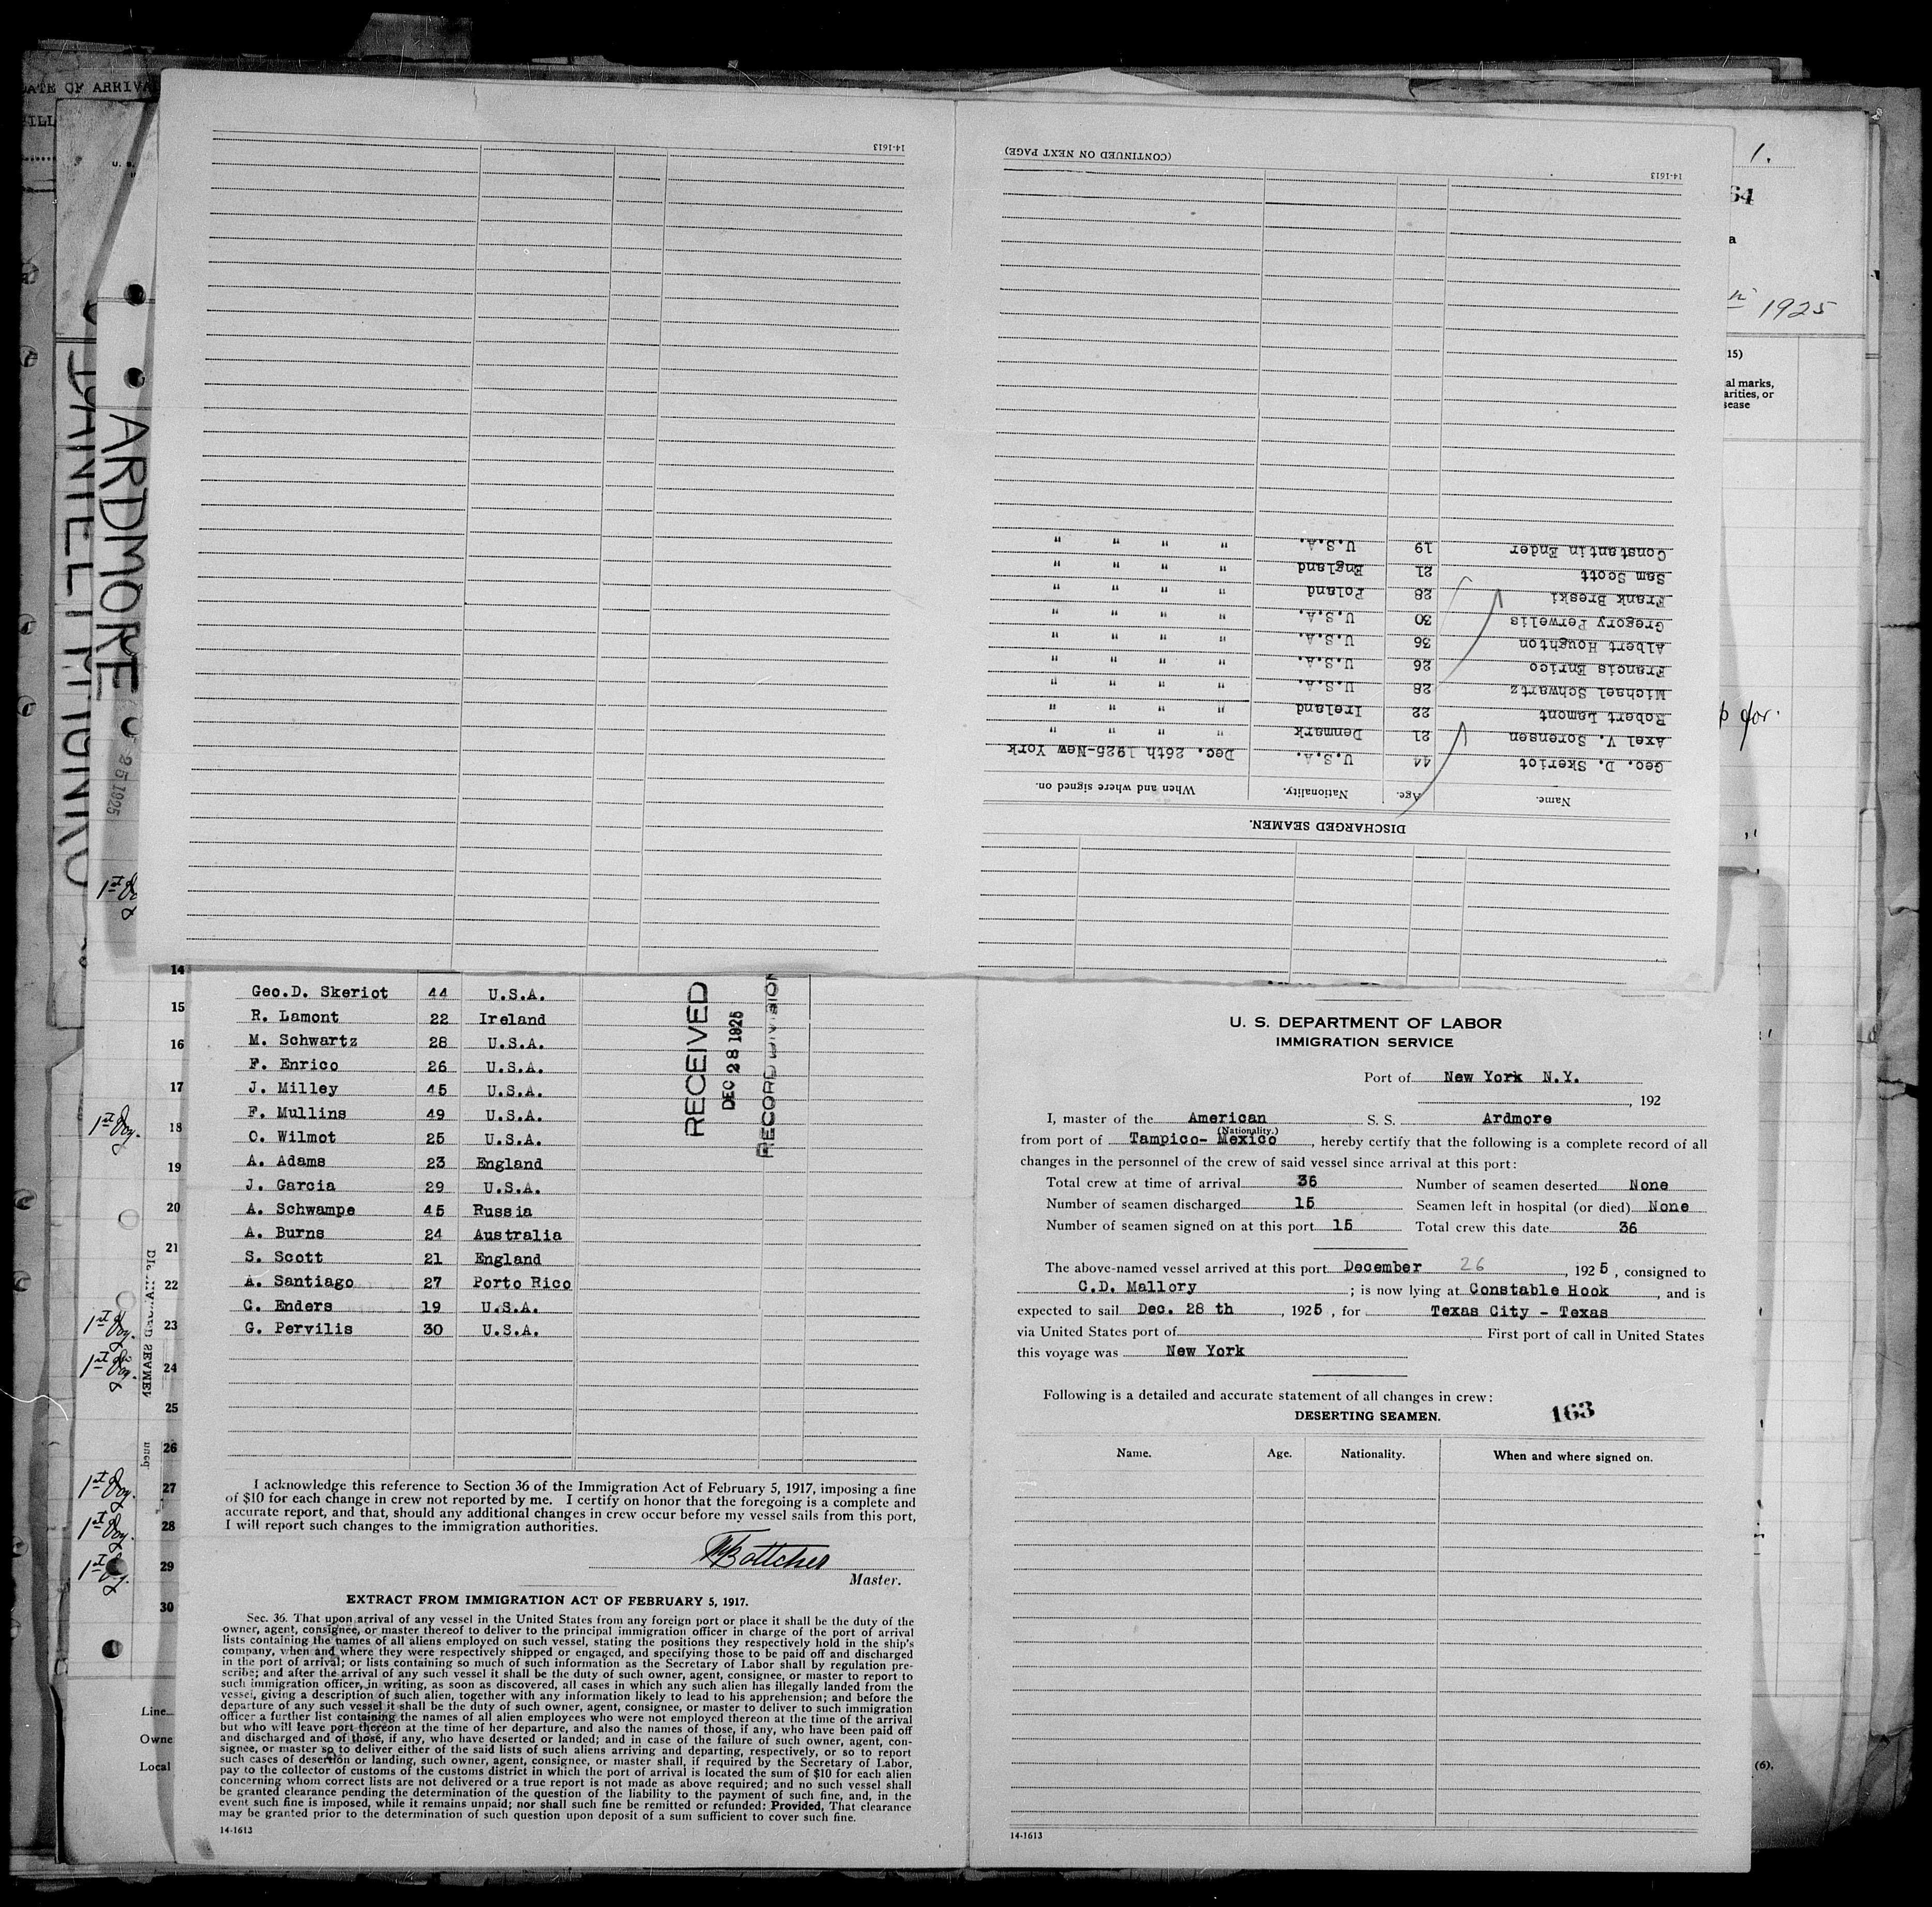 DATE OF ARRIVA
U. S.
ARDMORE
25 1925
1st Dog
14-1613
(CONTINUED ON NEXT PAGE)
14-1613
Constantin Ender 19 U.S.A. " " " "
Sam Scott 21 England " " " "
Frank Breski 28 Poland " " " "
Gregory Perwelis 30 U.S.A. " " " "
Albert Houghton 36 U.S.A. " " " "
Francis Enrico 26 U.S.A. " " " "
Michael Schwartz 28 U.S.A. " " " "
Robert Lamont 22 Ireland " " " "
Axel V. Sorensen 21 Denmark " " " "
Geo. D. Skeriot 44 U.S.A. Dec. 26th 1925-New York
Name. Age. Nationality. When and where signed on.
DISCHARGED SEAMEN.
1.
64
a
1925
15)
al marks,
arities, or
sease
14
15
16
17
18
19
20
21
22
23
24
25
26
27
28
29
30
1st Dog.
1st Dog.
1st Dog.
1st Dog.
1st Dog.
1st Dog.
Line
Owne
Local
Geo.D. Skeriot 44 U.S.A.
R. Lamont 22 Ireland
M. Schwartz 28 U.S.A.
F. Enrico 26 U.S.A.
J. Milley 45 U.S.A.
F. Mullins 49 U.S.A.
O. Wilmot 25 U.S.A.
A. Adams 23 England
J. Garcia 29 U.S.A.
A. Schwampe 45 Russia
A. Burns 24 Australia
S. Scott 21 England
A. Santiago 27 Porto Rico
C. Enders 19 U.S.A.
G. Pervilis 30 U.S.A.
RECEIVED
DEC 28 1925
RECORD DIVISION
I acknowledge this reference to Section 36 of the Immigration Act of February 5, 1917, imposing a fine
of $10 for each change in crew not reported by me. I certify on honor that the foregoing is a complete and
accurate report, and that, should any additional changes in crew occur before my vessel sails from this port,
I will report such changes to the immigration authorities.
Bottcher
Master.
EXTRACT FROM IMMIGRATION ACT OF FEBRUARY 5, 1917.
Sec. 36. That upon arrival of any vessel in the United States from any foreign port or place it shall be the duty of the
owner, agent, consignee, or master thereof to deliver to the principal immigration officer in charge of the port of arrival
lists containing the names of all aliens employed on such vessel, stating the positions they respectively hold in the ship's
company, when and where they were respectively shipped or engaged, and specifying those to be paid off and discharged
in the port of arrival; or lists containing so much of such information as the Secretary of Labor shall by regulation pre-
scribe; and after the arrival of any such vessel it shall be the duty of such owner, agent, consignee, or master to report to
such immigration officer, in writing, as soon as discovered, all cases in which any such alien has illegally landed from the
vessel, giving a description of such alien, together with any information likely to lead to his apprehension; and before the
departure of any such vessel it shall be the duty of such owner, agent, consignee, or master to deliver to such immigration
officer a further list containing the names of all alien employees who were not employed thereon at the time of the arrival
but who will leave port thereon at the time of her departure, and also the names of those, if any, who have been paid off
and discharged and of those, if any, who have deserted or landed; and in case of the failure of such owner, agent, con-
signee, or master so to deliver either of the said lists of such aliens arriving and departing, respectively, or so to report
such cases of desertion or landing, such owner, agent, consignee, or master shall, if required by the Secretary of Labor,
pay to the collector of customs of the customs district in which the port of arrival is located the sum of $10 for each alien
concerning whom correct lists are not delivered or a true report is not made as above required; and no such vessel shall
be granted clearance pending the determination of the question of the liability to the payment of such fine, and, in the
event such fine is imposed, while it remains unpaid; nor shall such fine be remitted or refunded: Provided, That clearance
may be granted prior to the determination of such question upon deposit of a sum sufficient to cover such fine.
14-1613
U. S. DEPARTMENT OF LABOR
IMMIGRATION SERVICE
Port of New York N.Y.
, 192
I, master of the American S. S. Ardmore
(Nationality.)
from port of Tampico- Mexico, hereby certify that the following is a complete record of all
changes in the personnel of the crew of said vessel since arrival at this port:
Total crew at time of arrival 36 Number of seamen deserted None
Number of seamen discharged 15 Seamen left in hospital (or died) None
Number of seamen signed on at this port 15 Total crew this date 36
The above-named vessel arrived at this port December 26, 1925, consigned to
C.D. Mallory; is now lying at Constable Hook, and is
expected to sail Dec. 28 th, 1925, for Texas City - Texas
via United States port of First port of call in United States
this voyage was New York
Following is a detailed and accurate statement of all changes in crew:
DESERTING SEAMEN.
163
Name. Age. Nationality. When and where signed on.
14-1613
(6).